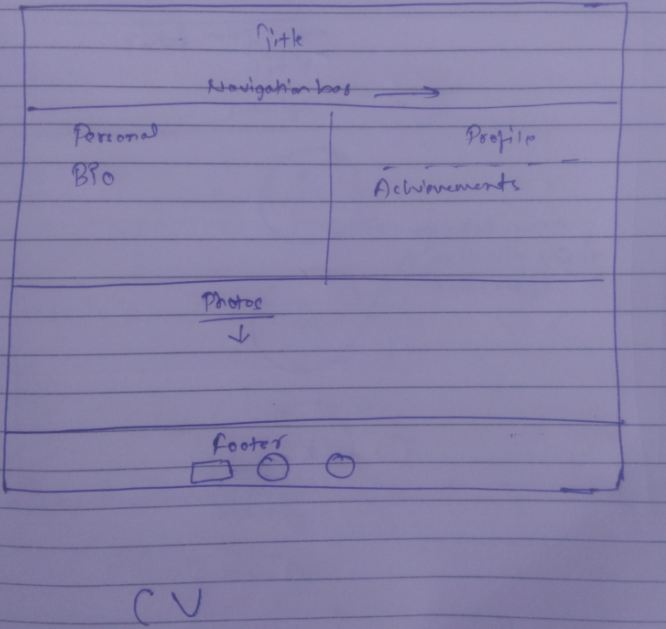 Title
Navigation bar
Personal
BIO
Profile
Achievements
Photos
Footer
CV